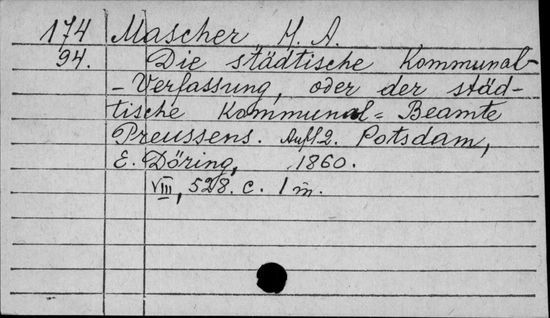 174 Mascher H. A.
94. Die städtische Kommunal-
-Verfassung, oder der städ-
tische Kommunal-Beamte
Preussens. Aufl 2. Potsdam,
E. Döring, 1860.
VIII, 528. c. 1 m.